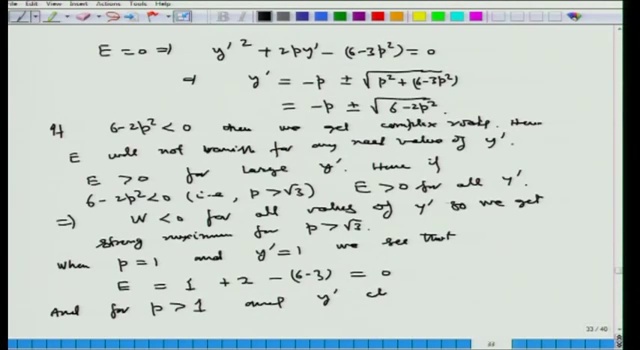 Edit View Insert Actions Tools Help
E = 0 ⇒ y'² + 2py' - (6-3p²) = 0
⇒ y' = -p ± √(p² + (6-3p²))
= -p ± √(6-2p²).
If 6-2p² < 0 then we get complex roots. Hence
E will not vanish for any real value of y'.
E > 0 for large y'. Hence if
6-2p² < 0 (i.e., p > √3) E > 0 for all y'.
⇒ W < 0 for all values of y' so we get
strong maximum for p > √3.
When p = 1 and y' = 1 we see that
E = 1 + 2 - (6-3) = 0
And for p > 1 and y' cl
33 / 40
33